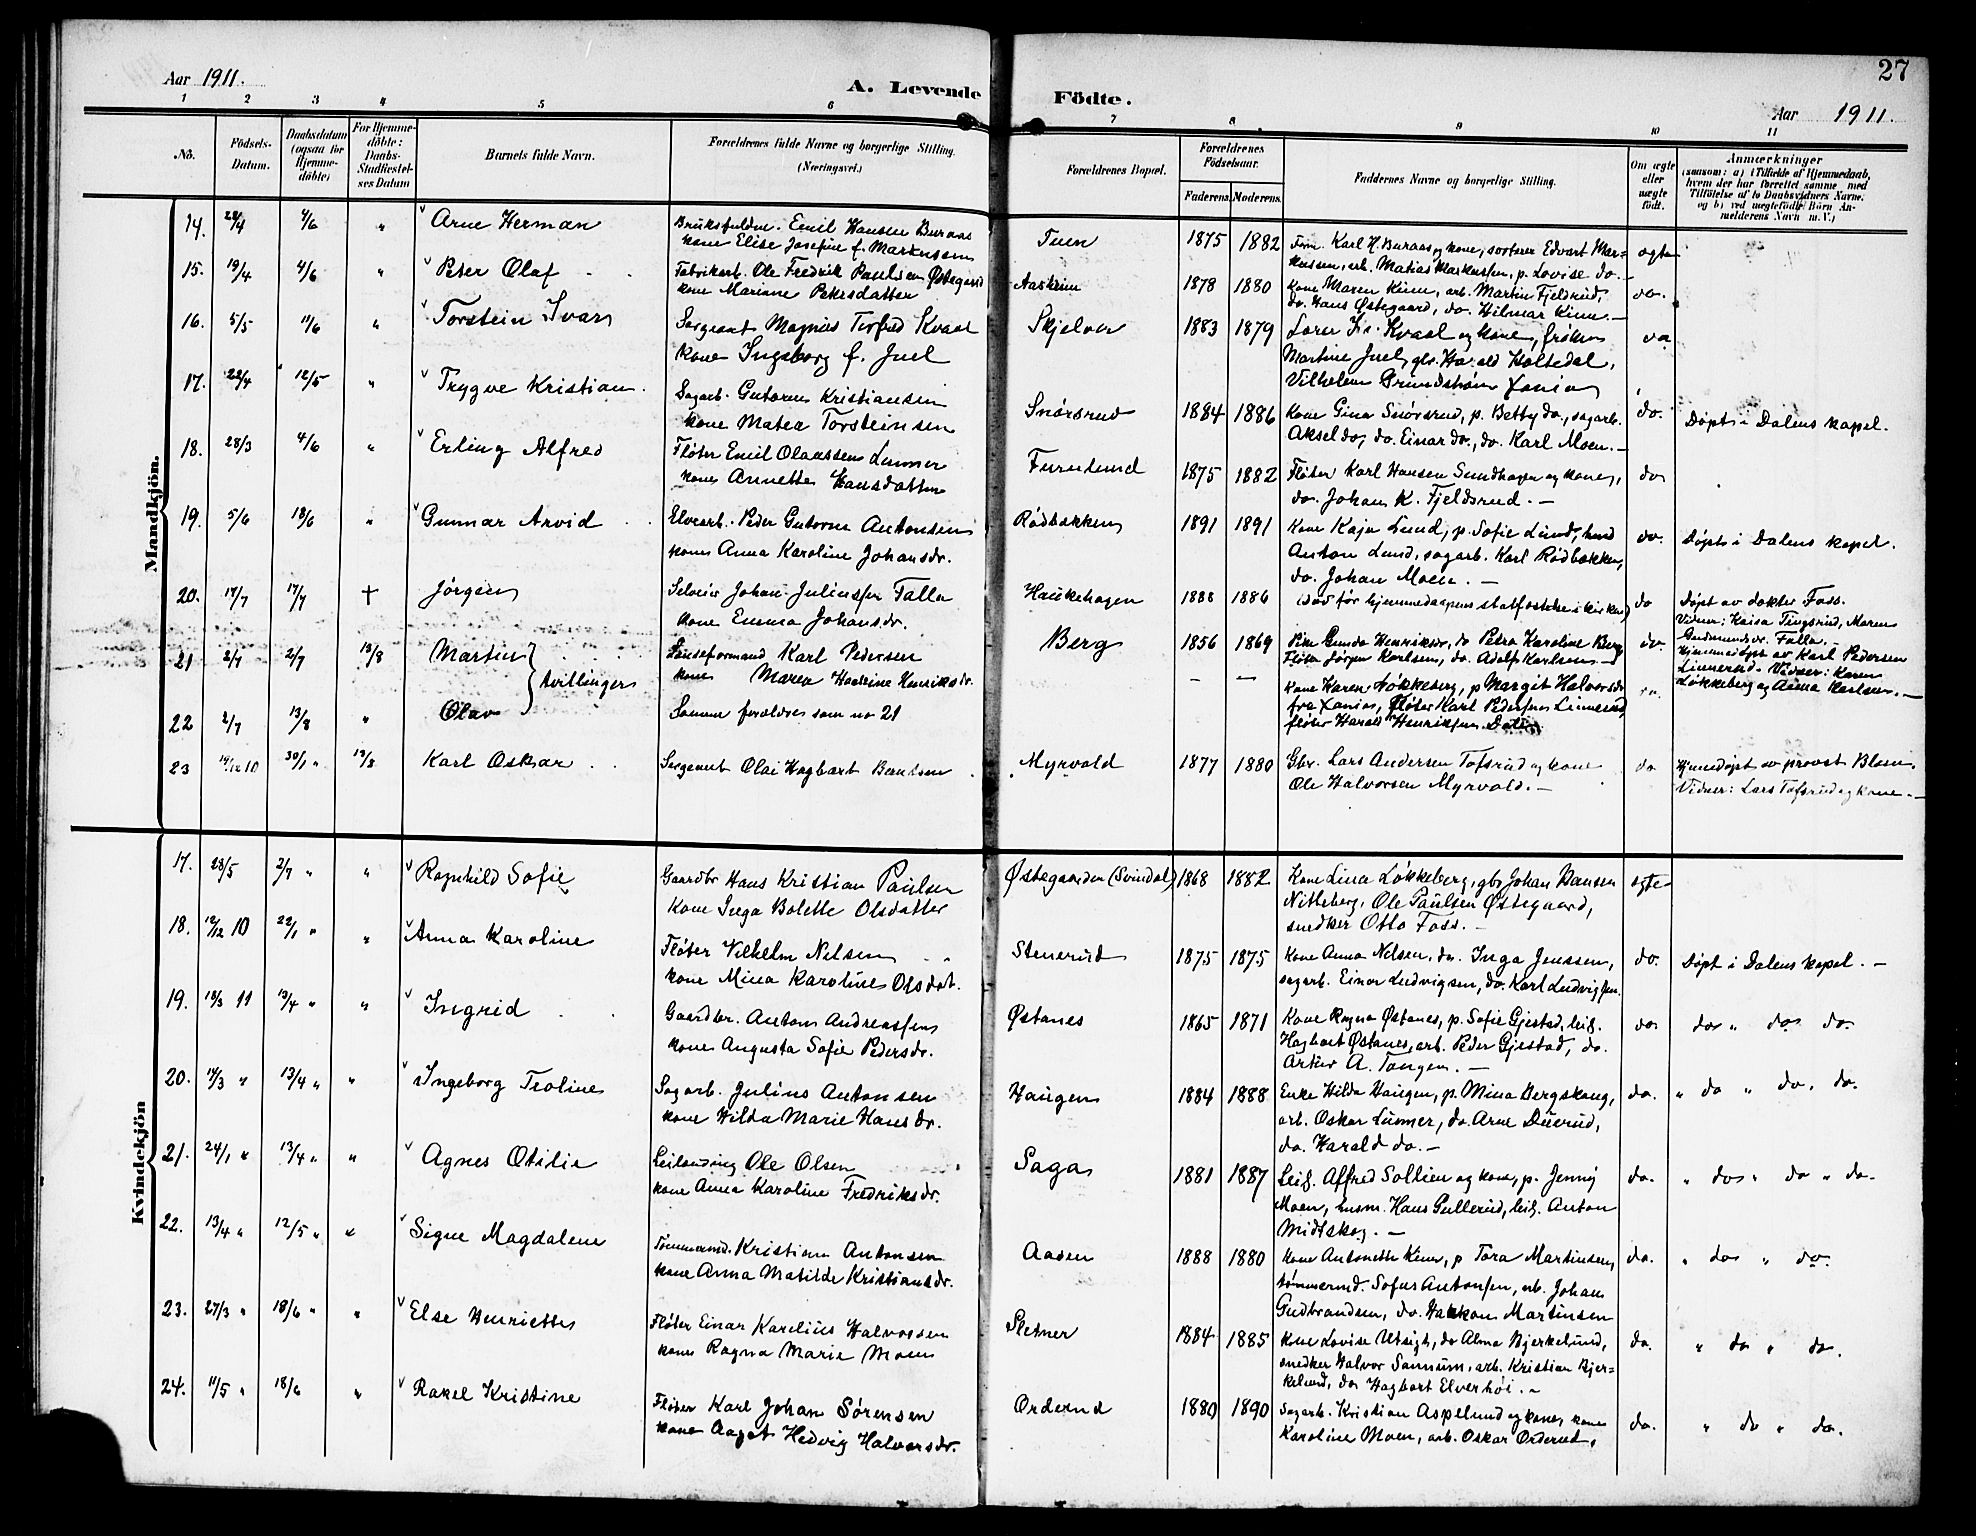 27
Aar 1911.
A. Levende Födte.
Aar 1911
1 2 3 4 5 6 7 8 9 10 11
No.
Födsels-Datum.
Daabsdatum (ogsaa for Hjemme-döbte)
For Hjemme-döbte: Daabs-Stadfæstel-ses Datum
Barnets fulde Navn.
Forældrenes fulde Navne og borgerlige Stilling. (Næringsvei.)
Forældrenes Bopæl.
Forældrenes Födselsaar.
Faderens. Moderens.
Faddernes Navne og borgerlige Stilling.
Om ægte eller uægte födt.
Anmærkninger (saasom: a) i Tilfælde af Hjemmedaab, hvem der har forrettet samme med Tilföielse af to Daabsvidners Navne, og b) ved uægtefödte Börn An-melderens Navn m. V.)
Mandkjön.
14. 4/6 " Arne Herman
Emil Hansen Buraas
kone Elise Josefine f. Markussen
Tuen 1875 1882
Karl H. Buraas og kone, sorterer Edvart Mar-
kussen, arb. Matias Markussen, p. Lovise do.
ægte
15. 19/4 4/6 " Peter Olaf
Fabrikarb. Ole Fredrik Paulsen Østegaard
kone Mariane Petersdatter
Aaskrim 1878 1880
kone Maren Kinn, arb. Martin Fjeldrud,
do. Hans Østegaard, do. Hilmar Kinn.
do.
16. 5/5 11/6 " Torstein Ivar
Sergeant Magnus Torfred Kvaal
kone Ingeborg f. Juel
Skjelver 1883 1879
Lærer Kvaal og kone, frøken
Martine Juel, Harald Holtedal,
Vilhelm Grundstrøm
do
17. 22/4 12/5 " Trygve Kristian
Sagarb. Gutorm Kristiansen
kone Matea Torsteinsen
Snörsrud 1884 1886
kone Gina Snörsrud, p. Betty do, sagarb.
Aksel do, do. Einar do., do. Karl Moen.
do. Døpt i Dalens kapel.
18. 28/3 4/6 " Erling Alfred
Fløter Emil Olaussen Lunner
kone Annette Hansdatter
Furulund 1875 1882
Fløter Karl Hansen Sundhagen og kone,
do. Johan K. Fjeldsrud. —
do
19. 5/6 18/6 " Gunnar Arvid
Elvearb. Peder Gutorm Antonsen
kone Anna Karoline Johansdr.
Rødbakken 1891 1891
kone Kaja Lund, p. Sofie Lund,
Anton Lund, sagarb. Karl Rødbakken,
do. Johan Moen. —
do. Døpt i Dalens kapel.
20. 17/7 17/7 † Jørgen
Selveier Johan Juliussen Falla
kone Emma Johansdr.
Haukehagen 1888 1886
(død før hjemmedaapens i kirken)
do
Døpt av doktor Foss.
Vidner: Kaisa Tingsrud, Maren
Gudmundsdr. Falla.
21 2/7 2/7 13/8 Martin } tvillinger
Lænseformand Karl Pedersen
kone Maren Henriksdr.
Berg 1856 1869
Pike Gunda Henriksdr, do Petra Karoline Berg
Fløter Jørgen Karlsen, do. Adolf Karlsen.
do.
Hjemmedøpt av Karl Pedersen
Linnerud. Vidner: Karen
Løkkeberg og Anna Karlsen. —
22 2/7 13/8 " Olav
Samme forældre som no 21
— —
Kone Karen Løkkeberg, p Margit Halvorsdr
fra Xania, fløter Karl Pedersen Linnerud,
fløter Harald Henriksen Dalen
23 30/1 " 13/8 Karl Oskar
Sergeant Olai Hagbart Berntsen
Myrvold 1877 1880
Gbr. Lars Andersen Tofsrud og kone
Ole Halvorsen Myrvold. —
do
Hjemmedøpt av provst Blom.
Vidner: Lars Tofsrud og kone. —
Kvindekjön
17. 28/5 2/7 " " Ragnhild Sofie
Gaardbr Hans Kristian Paulsen
Kone Inga Bolette Olsdatter
Østegaarden (Svindal) 1868 1882
Kone Lina Løkkeberg, gbr Johan Hansen
Nitteberg, Ole Paulsen Østegaard,
snedker Otto Foss. —
ægte
18. 12/12 10 22/1 " " Anna Karoline
Fløter Vilhelm Nilsen
kone Mina Karoline Olsdat.
Stenerud 1875 1875
Kone Anna Nilsen, do. Inga Jenssen,
sagarb. Einar Ludvigsen, do. Karl Ludvigsen.
do. Døpt i Dalens kapel. —
19. 18/3 11 13/4 " " Ingrid
Gaardbr. Anton Andreassen
kone Augusta Sofie Pedersdr.
Østanes 1865 1871
Kone Ragna Østanes, p. Sofie Gjestad, leil.
Hagbart Østanes, arb. Peder Gjestad, do.
Artur A. Tangen. —
do do " do do
20. 14/3 " 13/4 " " Ingeborg Teoline
Sagarb. Julius Antonsen
kone Hilda Marie Hansdr.
Haugen 1884 1888
Enke Hilda Haugen, p. Mina Bergskaug,
arb. Oskar Lunner, do. Arne Duerud,
do. Harald do. —
do. " do " do. do.
21. 24/1 " 13/4 " " Agnes Otilie
Leilænding Ole Olsen
kone Anna Karoline Fredriksdr.
Saga 1881 1887
Leil. Alfred Sollien og kone, p. Jenny
Moen, husm. Hans Gullerud, leil. Anton
Midtskog. —
do. " do " do " do.
22. 13/4 " 12/5 " " Signe Magdalene
Tømmermd. Kristian Antonsen
kone Anna Matilde Kristiansdr.
Aasen 1888 1880
kone Antonette Kinn, p Tora Martinsen,
tømmermd. Sofus Antonsen, arb. Johan
Gudbrandsen, do. Haakon Martinsen
do. " do " do.
23. 27/3 " 18/6 " " Else Henriette
Fløter Einar Karelius Halvorsen
kone Ragna Marie Moen
Sletner 1884 1885
Kone Lovise Utsigt, do Alma Bjerkelund,
snedker Halvor Sannum, arb. Kristian Bjer-
kelund, do Hagbart Elverhöi. —
do. " do " do.
24. 11/5 " 18/6 " Rakel Kristine
Fløter Karl Johan Sørensen
kone Aagot Hedvig Halvorsdr.
Orderud 1880 1890
Sagarb. Kristian Aspelund og kone, kone
Karoline Moen, arb. Oskar Orderud,
do. " do " do.